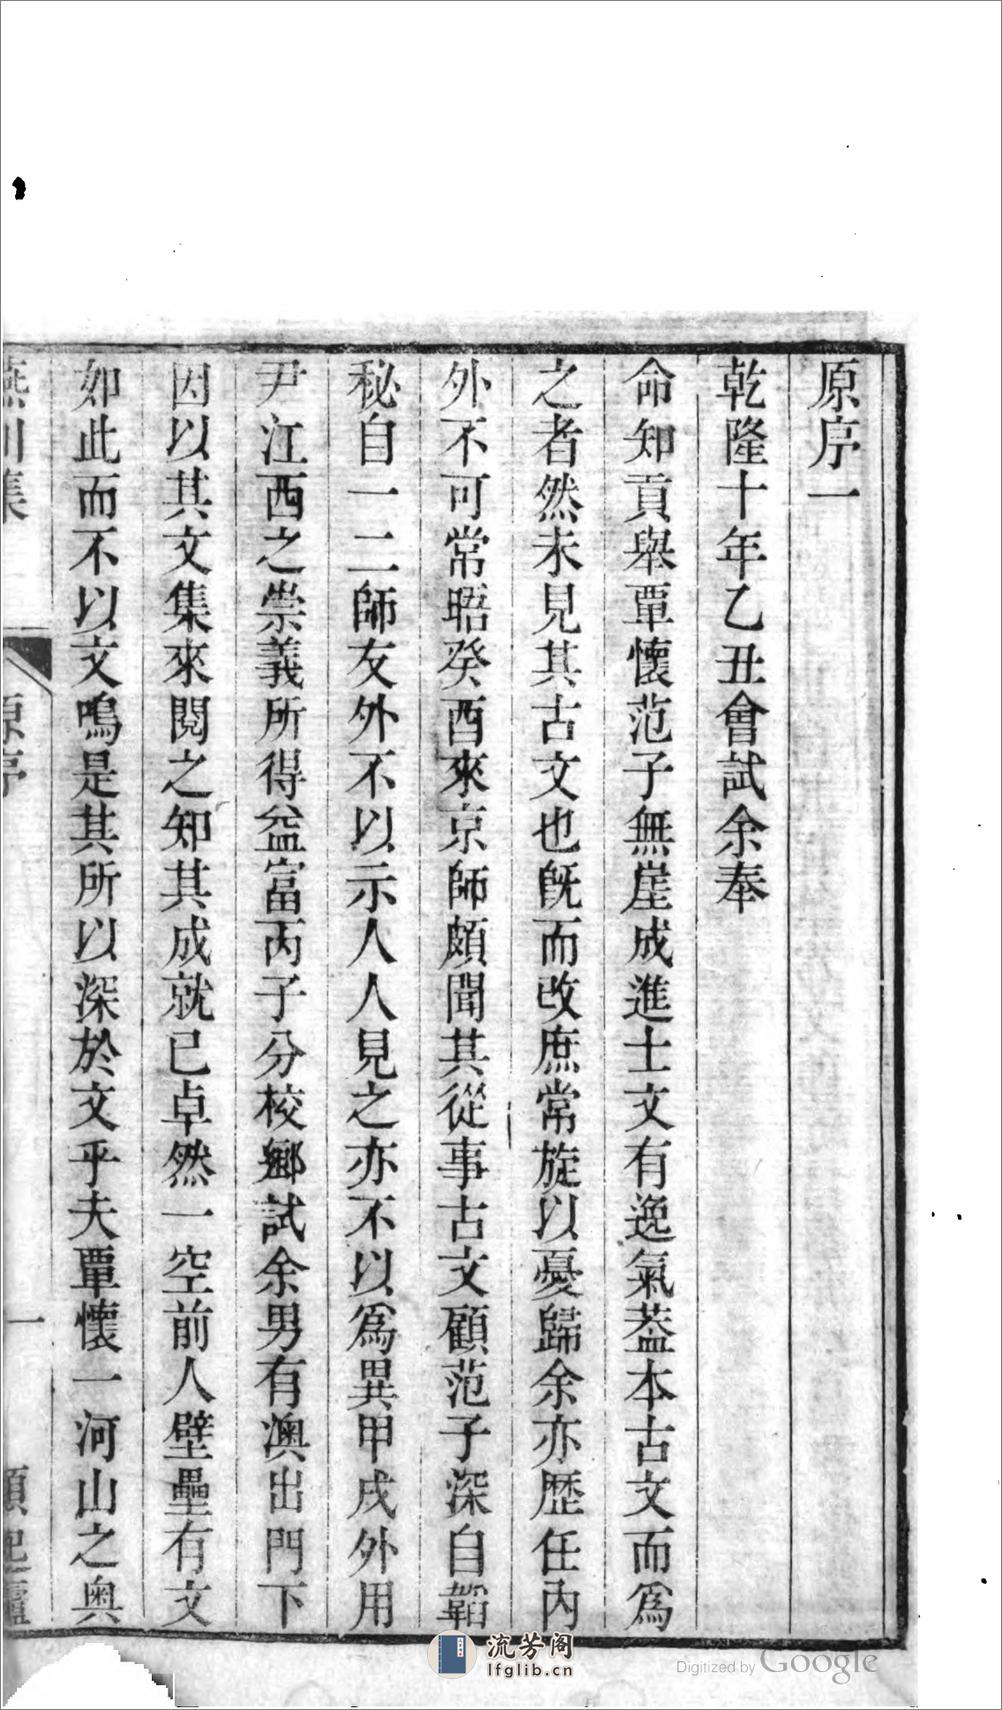 原序一
乾隆十年乙丑會試余奉
命知貢舉覃懷范子無崖成進士文有逸氣葢本古文而爲
之者然未見其古文也旣而改庶常旋以憂歸余亦歷任內
外不可常晤癸酉來京師頗聞其從事古文顧范子深自韜
秘自一二師友外不以示人人見之亦不以爲異甲戌外用
尹江西之崇義所得益富丙子分校鄉試余男有澳出門下
因以其文集來閱之知其成就已卓然一空前人壁壘有文
如此而不以文鳴是其所以深於文乎夫覃懷一河山之奧
燕川集 原序 一
流芳阁
lfglib.cn
Digitized by Google